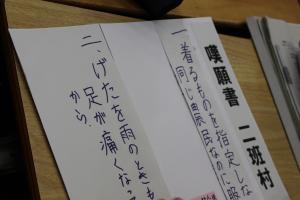 嘆願書 二班村
一着るものを指定しな
同じ農民なのに服
二、げたを雨のときも
足が痛くなっ
から